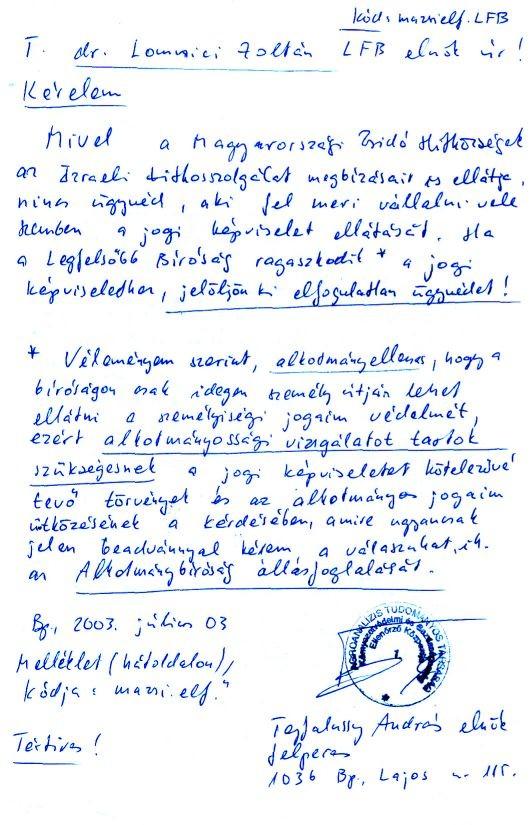 Kód: mazsielf. LFB
T. dr. Lomnici Zoltán LFB elnök úr!
Kérelem
Mivel a Magyarországi Zsidó Hitközségek
az Izraeli titkosszolgálat megbízásait is ellátja,
nincs ügyvéd, aki fel meri vállalni vele
szemben a jogi képviselet ellátását. Ha
a Legfelsőbb Bíróság ragaszkodik * a jogi
képviselethez, jelöljön ki elfogulatlan ügyvédet!
* Véleményem szerint, alkotmányellenes, hogy a
bíróságon csak idegen személy útján lehet
ellátni a személyiségi jogaim védelmét,
ezért alkotmányossági vizsgálatot tartok
szükségesnek a jogi képviseletet kötelezővé
tevő törvények és az alkotmányos jogaim
ütközésének a kérdésében, amire ugyancsak
jelen beadvánnyal kérem a válaszukat, ill.
az Alkotmánybíróság állásfoglalását.
Bp., 2003. július 03
Melléklet (hátoldalon),
kódja: mazsi.elf."
AGROANALÍZIS TUDOMÁNYOS TÁRSASÁG
Környezetvédelmi és
Ellenőrző
1
Tejfalussy András elnök
felperes
1036 Bp., Lajos u. 115.
Tértives!